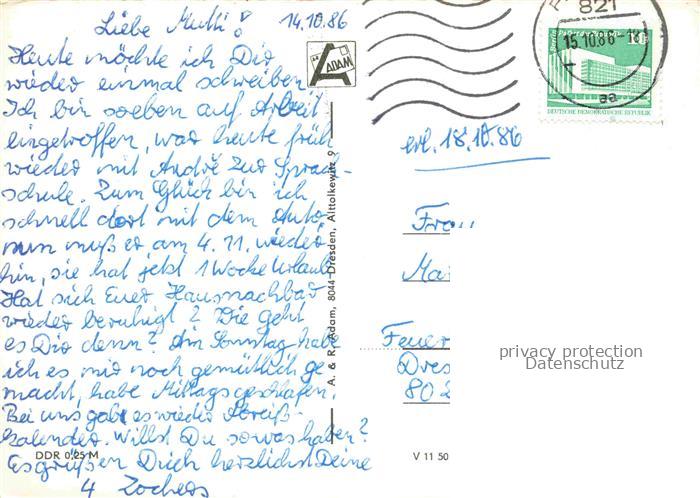 Liebe Mutti! 14.10.86
Heute möchte ich Dir
wieder einmal schreiben
Ich bin soeben auf Arbeit
eingetroffen, war heute früh
wieder mit André zur Sprach-
schule. Zum Glück bin ich
schnell dort mit dem Auto,
nun muß er am 4.11. wieder
hin, sie hat jetzt 1 Woche Urlaub
Hat sich Euer Hausnachbar
wieder beruhigt? Wie geht
es Dir denn? Am Sonntag habe
ich es mir noch gemütlich ge
macht, habe Mittags geschlafen.
Bei uns gabs wieder Abreiß-
kalender. Willst Du sowas haben?
Es grüßen Dich herzlichst Deine
4 Zochers
DDR 0,25 M
ADAM
A. & R. Adam, 8044 Dresden, Alttolkewitz 9
V 11 50
821
15.10.86-18
aa
10
DEUTSCHE DEMOKRATISCHE REPUBLIK
erl. 18.10.86
Fra
Ma
Feuer
Dres
802
privacy protection
Datenschutz